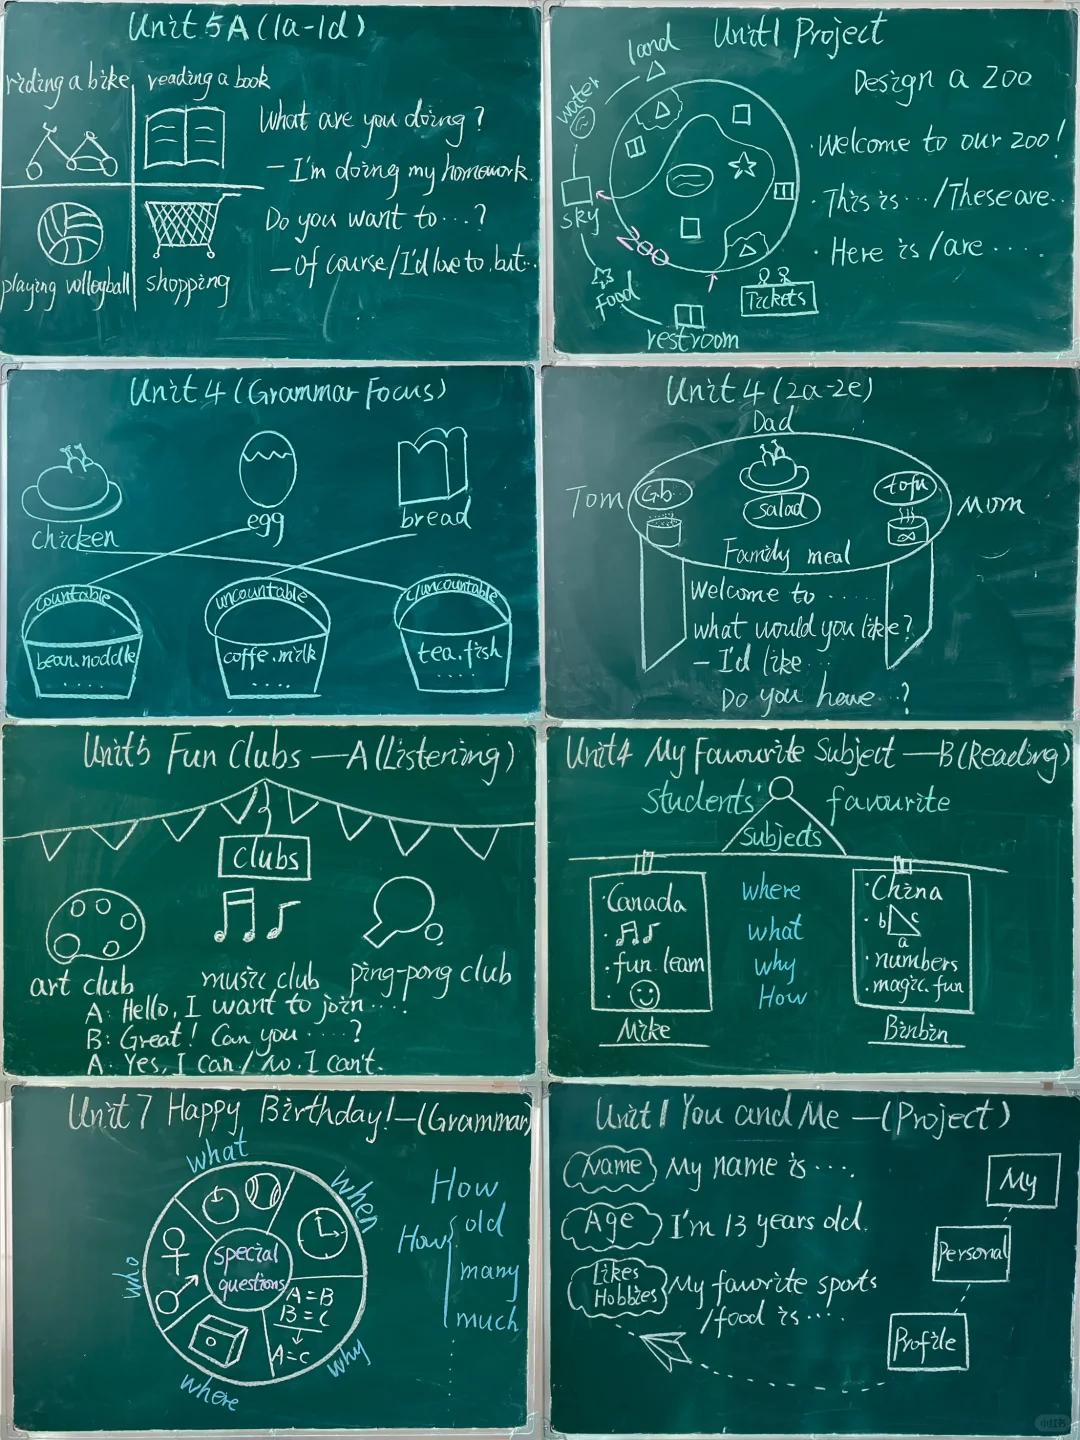 Unit 5A (1a-1d)
riding a bike reading a book
What are you doing?
- I'm doing my homework.
Do you want to...?
- Of course/I'd love to, but...
playing volleyball shopping
Unit1 Project
land
Design a zoo
water
· Welcome to our zoo!
· This is.../These are...
sky
· Here is/are ....
zoo
food
Tickets
restroom
Unit 4 (Grammar Focus)
chicken egg bread
countable uncountable c/uncountable
bean.noddle coffe.milk tea.fish
.... .... ....
Unit 4 (2a-2e)
Dad
Tom Gb tofu Mom
salad
Family meal
Welcome to ......
what would you like?
- I'd like ...
Do you have ...?
Unit5 Fun Clubs —A(Listening)
clubs
art club music club ping-pong club
A: Hello, I want to join ....
B: Great! Can you ....?
A: Yes, I can / No, I can't.
Unit4 My Favourite Subject —B(Reading)
Students' favourite
Subjects
·Canada
·
·fun. learn
·
Mike
where
what
why
How
·China
· b c
a
·numbers
·magic.fun
Binbin
Unit 7 Happy Birthday!—(Grammar)
what
when
who
special
questions
A=B
B=C
A=C
why
where
How
How old
many
much
Unit 1 You and Me —(Project)
Name My name is ....
Age I'm 13 years old.
Likes
Hobbies My favorite sports
/food is ....
My
Personal
Profile
小红书